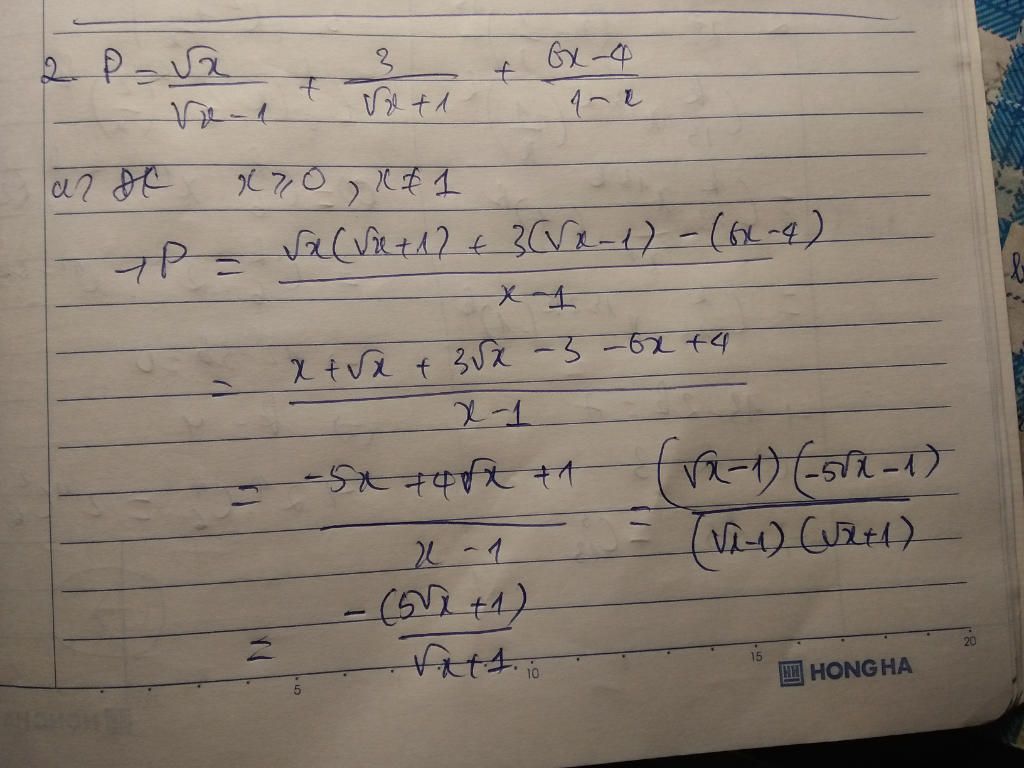 2 P = √x/(√x-1) + 3/(√x+1) + (6x-4)/(1-x)
a, ĐK x ⩾ 0, x ≠ 1
→ P = (√x(√x+1) + 3(√x-1) - (6x-4))/(x-1)
= (x + √x + 3√x - 3 - 6x + 4)/(x-1)
= (-5x + 4√x + 1)/(x-1) = ((√x-1)(-5√x-1))/((√x-1)(√x+1))
= -(5√x+1)/(√x+1)
5 10 15 20
HH HONG HA